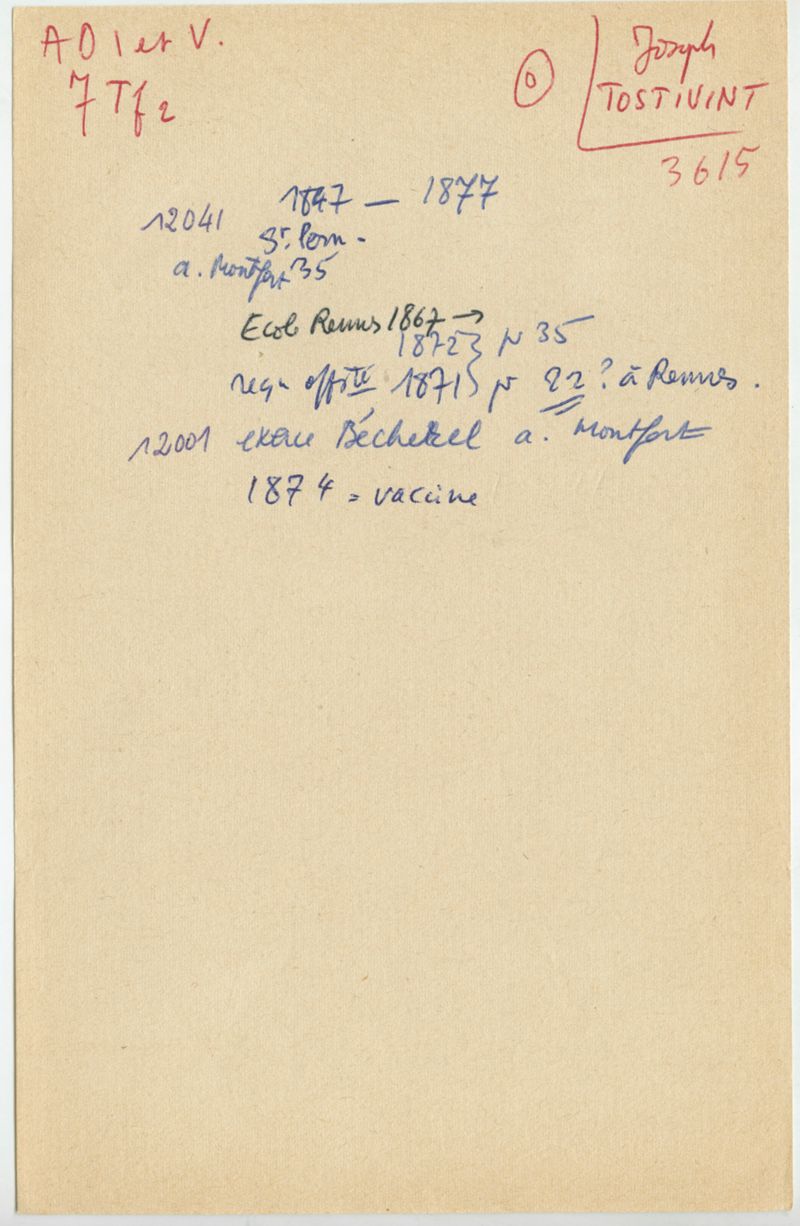 AD I et V.
7 Tf 2
0
Joseph
TOSTIVINT
3615
1847 — 1877
12041
St. Pern -
a. Montfort 35
Ecole Rennes 1867 →
1872 } pr 35
reçu offi 1871 } pr 22 ? à Rennes.
12001 exerce Bécherel a. Montfort
1874 = vaccine